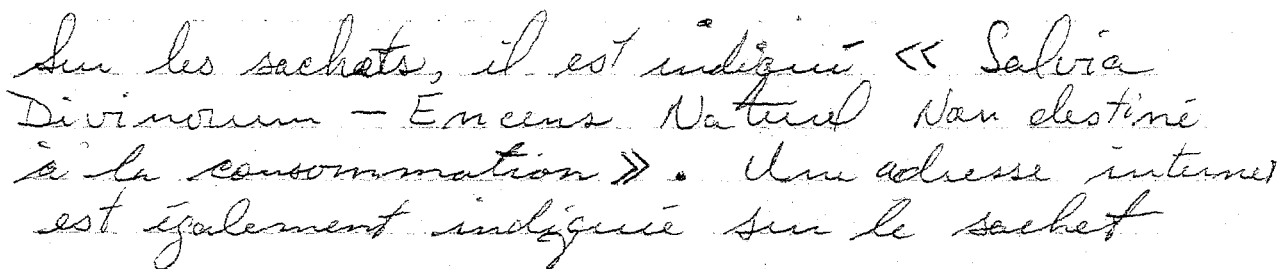 Sur les sachets, il est indiqué « Salvia
Divinorum – Encens Naturel Non destiné
à la consommation ». Une adresse internet
est également indiquée sur le sachet